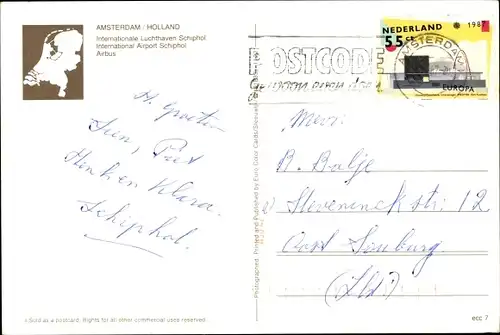 AMSTERDAM / HOLLAND
Internationale Luchthaven Schiphol
International Airport Schiphol
Airbus
H. Groeten
Sien, Piet
Henk en Klara.
Schiphol.
Sold as a postcard. Rights for all other commercial uses reserved.
Photographed, Printed and Published by Euro Color Cards
POSTCODE
AMSTERDAM
NEDERLAND
1987
55 ct
EUROPA
Mevr.
R. Balje
12
Oost Souburg
(Zld.)
ecc 7